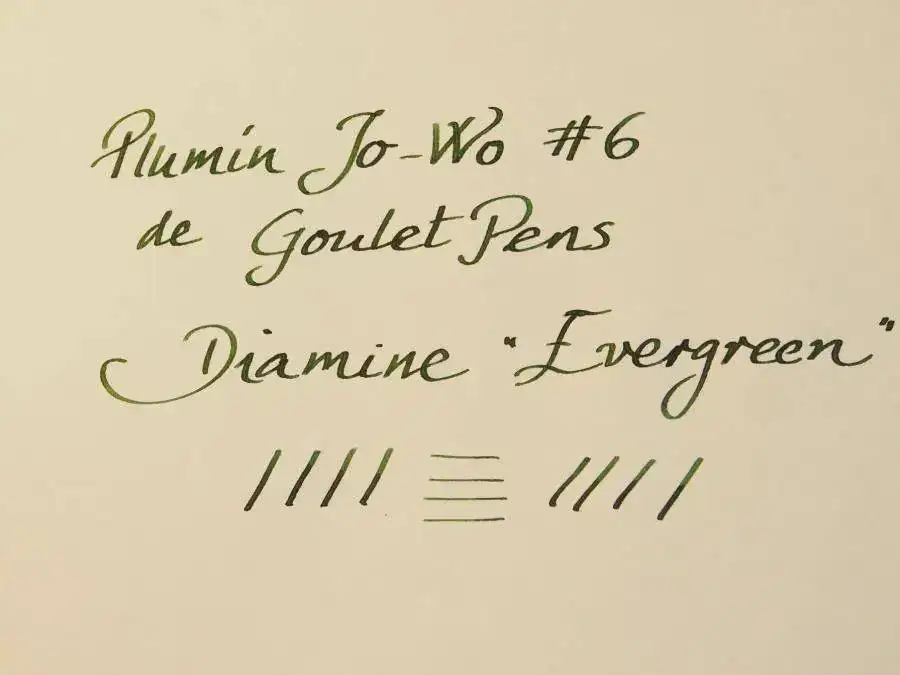 Plumín Jo-Wo #6
de Goulet Pens
Diamine "Evergreen"